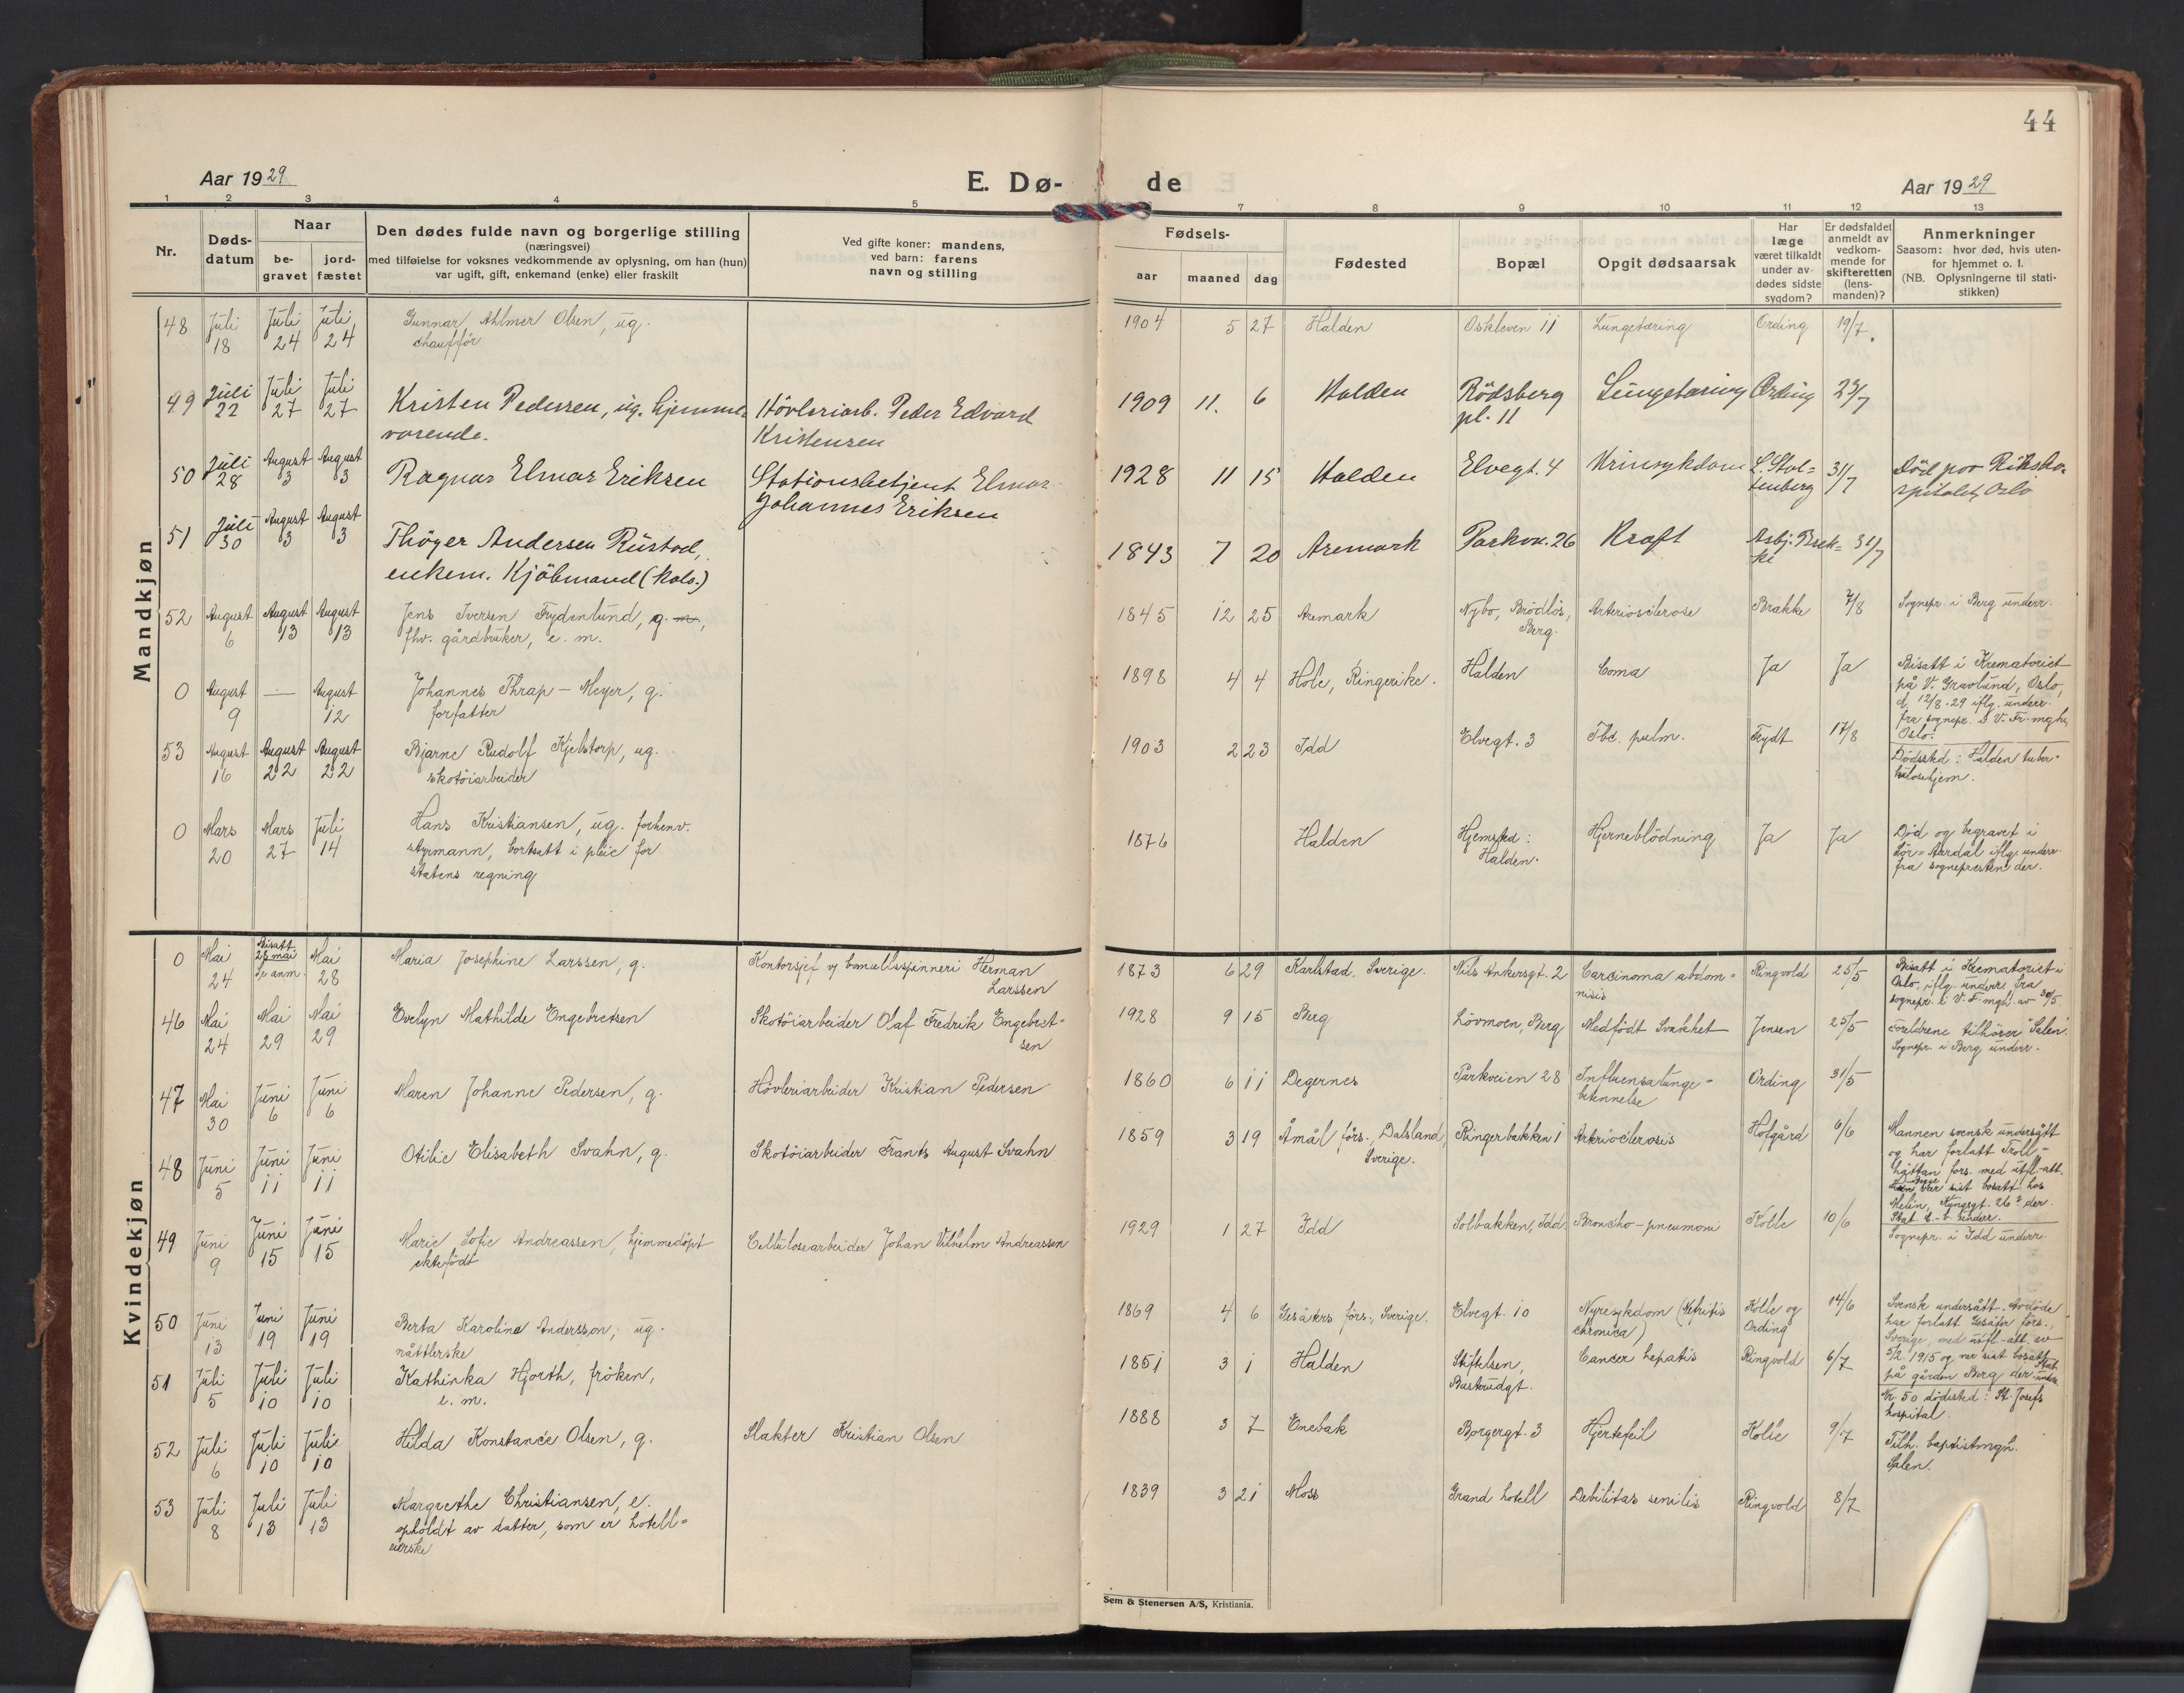 44
Aar 1929
E. Dø-
de
Aar 1929
1 2 3 4 5 7 8 9 10 11 12 13
Nr.
Døds-
datum
Naar
be-
gravet
jord-
fæstet
Den dødes fulde navn og borgerlige stilling
(næringsvei)
med tilføielse for voksnes vedkommende av oplysning, om han (hun)
var ugift, gift, enkemand (enke) eller fraskilt
Ved gifte koner: mandens,
ved barn: farens
navn og stilling
Fødsels-
aar maaned dag
Fødested
Bopæl
Opgit dødsaarsak
Har
læge
været tilkaldt
under av-
dødes sidste
sygdom?
Er dødsfaldet
anmeldt av
vedkom-
mende for
skifteretten
(lens-
manden)?
Anmerkninger
Saasom: hvor død, hvis uten-
for hjemmet o. l.
(NB. Oplysningerne til stati-
stikken)
Mandkjøn
48 Juli 18 Juli 24 Juli 24 Gunnar Ahlmer Olsen, ug.
chauffør
1904 5 27 Halden Oskleven 11 Lungetæring Ording 19/7.
49 Juli 22 Juli 27 Juli 27 Kristen Pedersen, ug. hjemme-
værende.
Høvleriarb. Peder Edvard
Kristensen
1909 11. 6 Halden Rødsberg
pl. 11
Lungetæring Ording 23/7
50 Juli 28 August 3 August 3 Ragnar Elmar Eriksen
Stationsbetjent Elmar
Johannes Eriksen
1928 11 15 Halden Elvegt. 4 L. Stol-
tenberg
31/7
Død paa Riksho-
spitalet, Oslo
51 Juli 30 August 3 August 3 Thöger Andersen Rustad,
enkem. Kjöbmand (kolo.)
1843 7 20 Aremark Parkv. 26 Kraft Asbj. Bræk-
ke
31/7
52 August 6 August 13 August 13 Jens Iversen Frydenlund, g. m.,
fhv. gårdbruker, e. m.
1845 12 25 Aremark Nybo, Brødløs,
Berg.
Arteriosclerose Brække 7/8 Sognepr. i Berg underr.
0 August 9 — August 12 Johannes Thrap-Meyer, g.
forfatter
1898 4 4 Hole, Ringerike. Halden Coma Ja Ja
Bisatt i Krematoriet
på V. Gravlund, Oslo,
d. 12/8-29 iflg. underr.
fra sognepr. i V. Fr. mgh,
Oslo.
53 August 16 August 22 August 22 Bjarne Rudolf Kjelstorp, ug.
skotøiarbeider
1903 2 23 Idd Elvegt. 3 Tbc. pulm. Frydt 17/8
Dødssted: Halden tuber-
kulosehjem.
0 Mars 20 Mars 27 Juli 14 Hans Kristiansen, ug. forhenv.
styrmann, bortsatt i pleie for
statens regning
1876 Halden Hjemsted:
Halden.
Hjerneblödning Ja Ja
Død og begravet i
Sør-Aurdal iflg. underr.
fra sognepresten der.
Kvindekjøn
0 Mai 24 Bisatt
28 mai
Se anm.
Mai 28 Maria Josephine Larssen, g.
Kontorsjef v/ bomullsspinneri Herman
Larssen
1873 6 29 Karlstad, Sverige. Nils Ankersgt. 2 Carcinoma abdom-
nisis
Ringvold 25/5
Bisatt i Krematoriet i
Oslo, iflg. underr. fra
sognepr. i V. F. mgh. av 30/5.
46 Mai 24 Mai 29 Mai 29 Evelyn Mathilde Engebretsen
Skotøiarbeider Olaf Fredrik Engebret-
sen
1928 9 15 Berg Lövmoen, Berg Medfödt Svakhet Jensen 25/5
Foreldrene tilhører "Salen".
Sognepr. i Berg underr.
47 Mai 30 Juni 6 Juni 6 Maren Johanne Pedersen, g.
Høvleriarbeider Kristian Pedersen
1860 6 11 Degernes Parkveien 28 Influensalunge-
betennelse
Ording 31/5
48 Juni 5 Juni 11 Juni 11 Otilie Elisabeth Svahn, g.
Skotøiarbeider Frants August Svahn
1859 3 19 Åmål förs., Dalsland,
Sverige.
Ringerbakken 1 Arteriosclerosis Hofgård 6/6
Mannen svensk undersått
og har forlatt Troll-
hättan förs. med utfl.-att.
var sist bosatt hos
Melin, Kungsgt. 26 der.
49 Juni 9 Juni 15 Juni 15 Marie Sofie Andreassen, hjemmedöpt
ektefödt
Cellulosearbeider Johan Vilhelm Andreassen
1929 1 27 Idd Solbakken, Idd Broncho-pneumoni Kolle 10/6
Sognepr. i Idd underr.
50 Juni 13 Juni 19 Juni 19 Berta Karolina Andersson, ug.
nåtlerske
1869 4 6 Gesäters förs., Sverige. Elvegt. 10 Nyresykdom (Nefritis
chronica)
Kolle og
Ording
14/6
Svensk undersått. Avdöde
har forlatt Gesäter förs.,
Sverige, med utfl.-att. av
5/2 1915 og var sist bosatt
på gården Berg der.
Nr. 50 dödssted: St. Josefs
hospital.
51 Juli 5 Juli 10 Juli 10 Kathinka Hjorth, fröken,
e. m.
1851 3 1 Halden Stiftelsen,
Busterudgt.
Cancer hepatis Ringvold 6/7
52 Juli 6 Juli 10 Juli 10 Hilda Konstance Olsen, g.
Slakter Kristian Olsen
1888 3 7 Enebak Borgergt. 3 Hjertefeil Kolle 9/7
Tilh. baptistmgh.
Salen.
53 Juli 8 Juli 13 Juli 13 Margrethe Christiansen, e.
opholdt av datter, som er hotell-
eierske
1839 3 21 Moss Grand hotell Debilitas senilis Ringvold 8/7
Sem & Stenersen A/S, Kristiania.